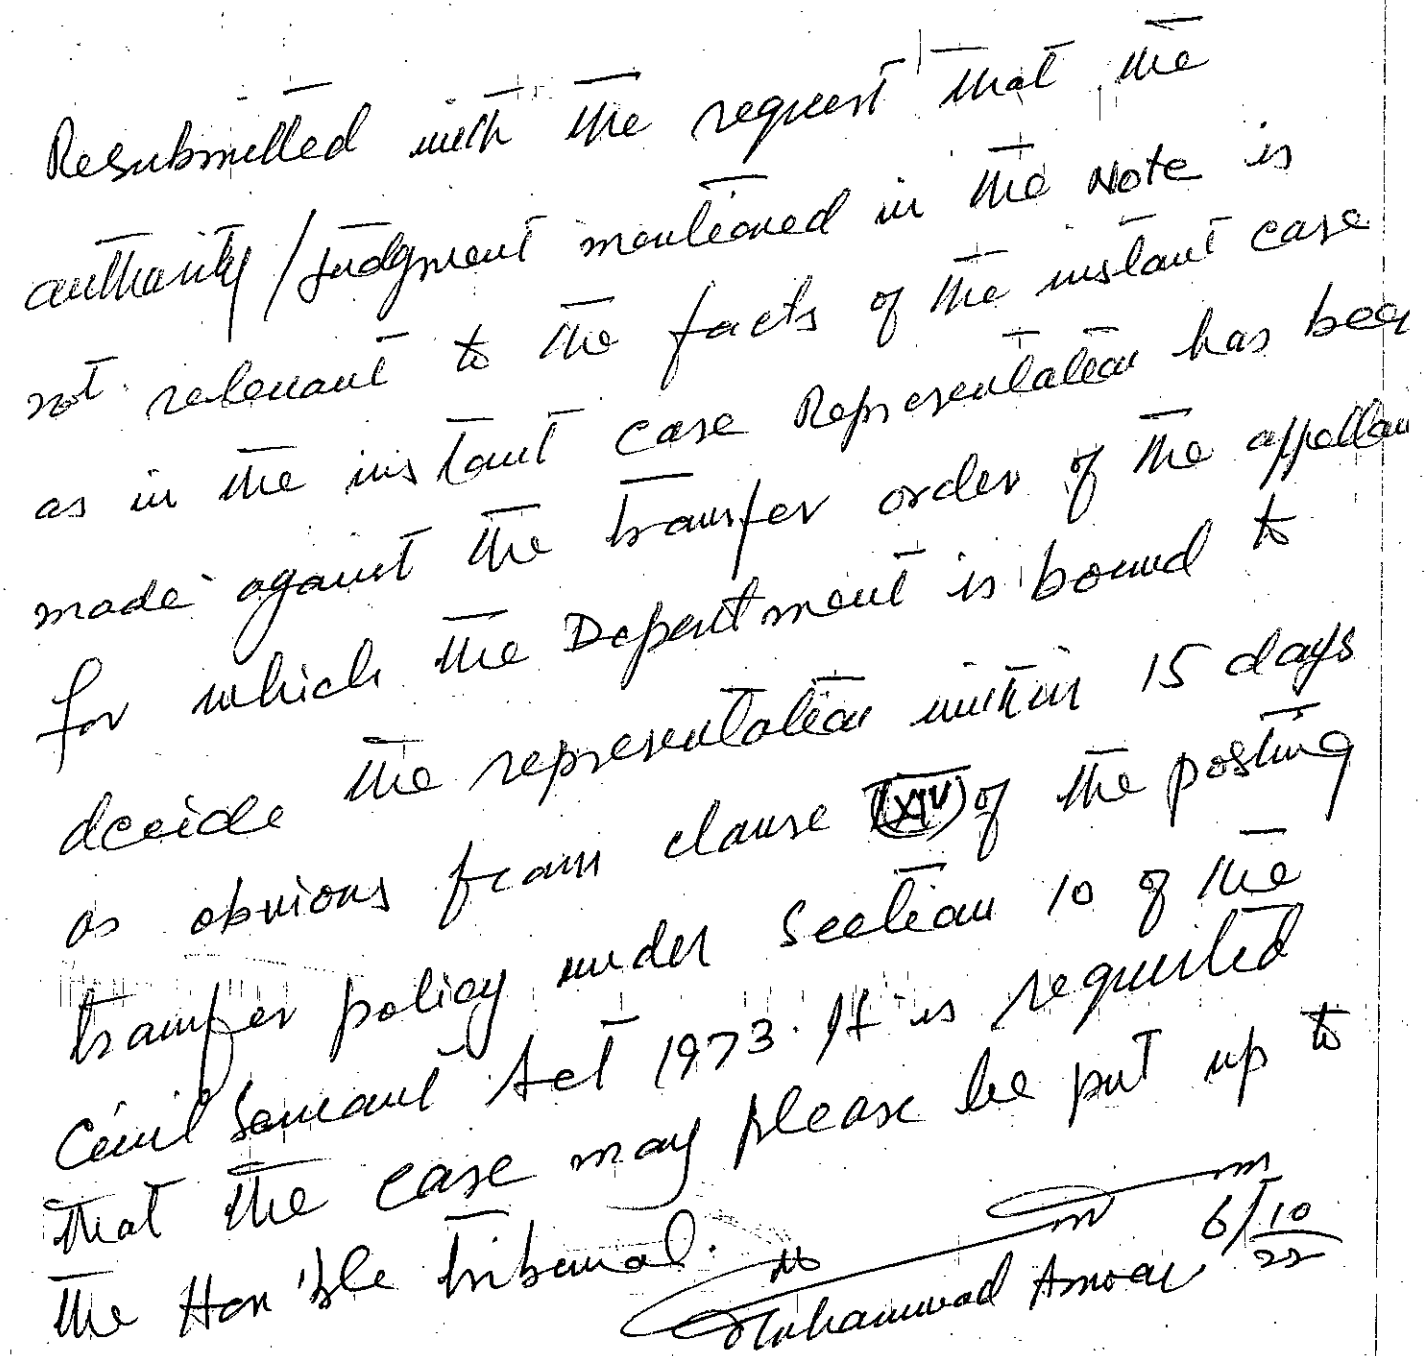 Resubmitted with the request that the
authority/Judgment mentioned in the Note is
not relevant to the facts of the instant case
as in the instant case Representation has been
made against the transfer order of the appellan
for which the Department is bound to
decide the representation within 15 days
as obvious from clause (XIV) of the posting
transfer policy under Section 10 of the
Civil Servant Act 1973. It is requested
that the case may please be put up to
the Hon'ble tribunal.
6/10/22
Mohammad Amoar